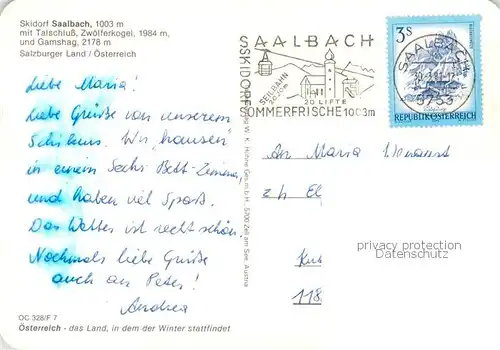 Skidorf Saalbach, 1003 m
mit Talschluß, Zwölferkogel, 1984 m,
und Gamshag, 2178 m
Salzburger Land / Österreich
Liebe Maria!
Liebe Grüße von unserem
Schikurs. Wir "hausen"
in einem Sechs-Bett-Zimmer,
und haben viel Spaß.
Das Wetter ist recht schön.
Nochmals liebe Grüße
auch an Peter!
Andrea
OC 328/F 7
Österreich - das Land, in dem der Winter stattfindet
W. K. Hühne Ges.m.b.H., 5700 Zell am See, Austria
SAALBACH
SKIDORF
SEILBAHN
2020m
20 LIFTE
SOMMERFRISCHE 1003m
3S
REPUBLIK ÖSTERREICH
SAALBACH
5753
An Maria
z H
118
privacy protection
Datenschutz